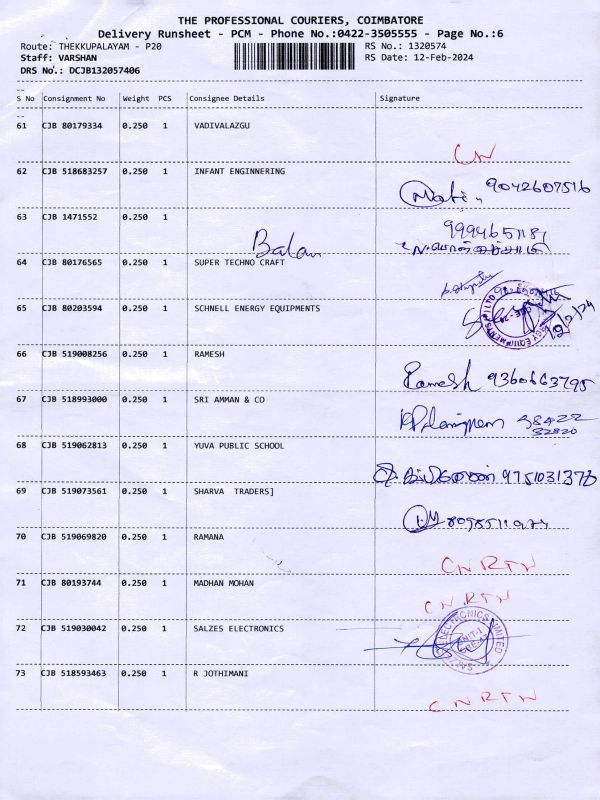 THE PROFESSIONAL COURIERS, COIMBATORE
Delivery Runsheet - PCM - Phone No.:0422-3505555 - Page No.:6
Route: THEKKUPALAYAM - P20 RS No.: 1320574
Staff: VARSHAN RS Date: 12-Feb-2024
DRS No.: DCJB132057406
S No Consignment No Weight PCS Consignee Details Signature
61 CJB 80179334 0.250 1 VADIVALAZGU
CN
62 CJB 518683257 0.250 1 INFANT ENGINNERING
9042607516
63 CJB 1471552 0.250 1
Balan
64 CJB 80176565 0.250 1 SUPER TECHNO CRAFT
65 CJB 80203594 0.250 1 SCHNELL ENERGY EQUIPMENTS
12/2/24
66 CJB 519008256 0.250 1 RAMESH
Ramesh 9360663795
67 CJB 518993000 0.250 1 SRI AMMAN & CO
98422
32820
68 CJB 519062813 0.250 1 YUVA PUBLIC SCHOOL
69 CJB 519073561 0.250 1 SHARVA TRADERS]
70 CJB 519069820 0.250 1 RAMANA
CN RTN
71 CJB 80193744 0.250 1 MADHAN MOHAN
CN RTN
72 CJB 519030042 0.250 1 SALZES ELECTRONICS
73 CJB 518593463 0.250 1 R JOTHIMANI
CN RTN